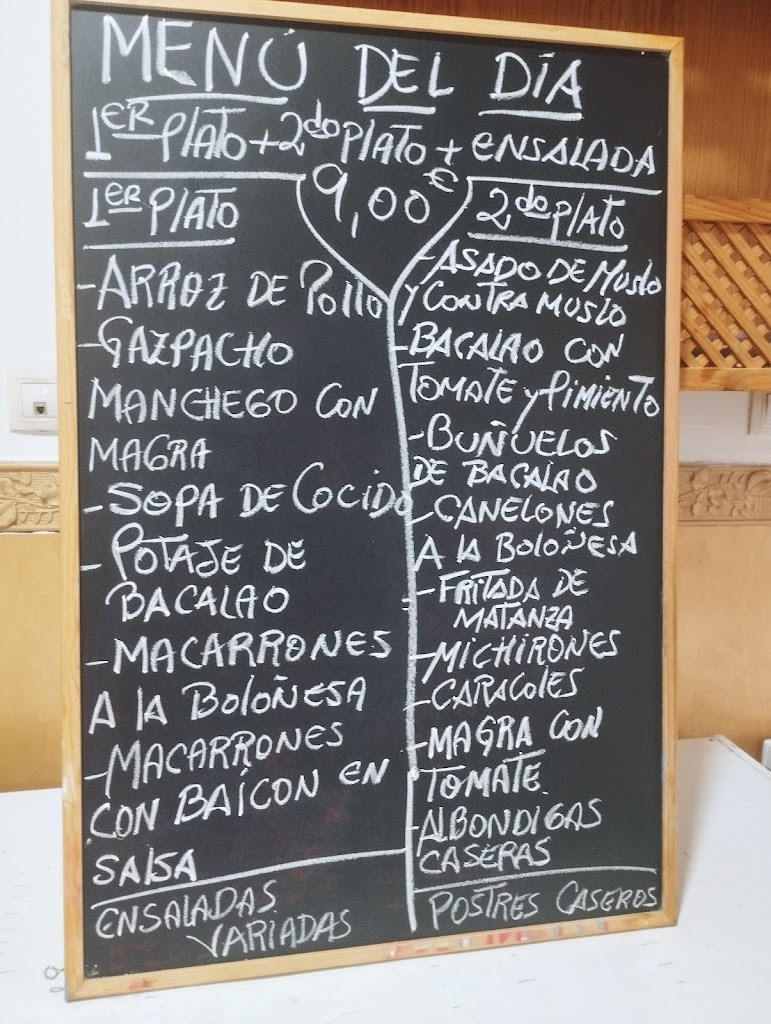 MENÚ DEL DÍA
1ER PLATO + 2do PLATO + ENSALADA
9,00€
1ER PLATO
- ARROZ DE POLLO
- GAZPACHO
MANCHEGO CON
MAGRA
- SOPA DE COCIDO
- POTAJE DE
BACALAO
- MACARRONES
A LA BOLOÑESA
- MACARRONES
CON BAÍCON EN
SALSA
ENSALADAS
VARIADAS
2do PLATO
- ASADO DE MUSLO
Y CONTRA MUSLO
- BACALAO CON
TOMATE Y PIMIENTO
- BUÑUELOS
DE BACALAO
- CANELONES
A LA BOLOÑESA
- FRITADA DE
MATANZA
- MICHIRONES
- CARACOLES
- MAGRA CON
TOMATE
- ALBONDIGAS
CASERAS
POSTRES CASEROS